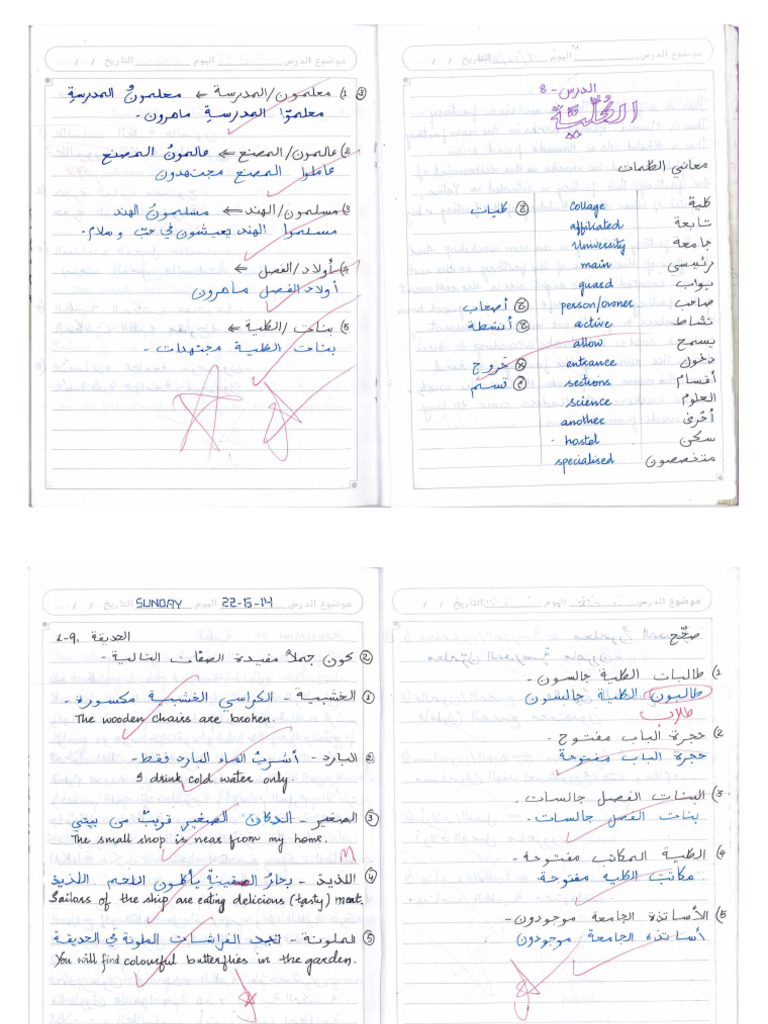 موضوع الدرس اليوم التاريخ / /
الدرس - 8
الكُلّيّة
معاني الكلمات
كلية collage ج كليات
تابعة affiliated
جامعة University
رئيسي main
بواب guard
صاحب person/owner ج أصحاب
نشاط active ج أنشطة
يسمح allow
دخول entrance خروج
أقسام sections قسم
العلوم science
أخرى another
سكن hostel
متخصصون specialised
موضوع الدرس اليوم التاريخ / /
③ 1) معلمون/المدرسة ← معلمونُ المدرسةِ
معلموا المدرسةِ ماهرون -
2) عالمون/المصنع ← عالمونُ المصنع
عاملوا المصنع مجتهدون
3) مسلمون/الهند ← مسلمونُ الهند
مسلموا الهند يعيشون في حبّ وسلام.
4) أولاد/الفصل ←
أولاد الفصل ماهرون
5) بنات/الكلية ←
بنات الكلية مجتهدات -
موضوع الدرس اليوم التاريخ / /
صحّح
1) طالبات الكلية جالسون -
طالبون الكلية جالسون
طلاب
2) حجرة ألباب مفتوح -
حجرة الباب مفتوحة
3) البنات الفصل جالسات -
بنات الفصل جالسات -
4) الكلية المكاتب مفتوحة -
مكاتب الكلية مفتوحة
5) الأساتذة الجامعة موجودون -
أساتذة الجامعة موجودون
موضوع الدرس 22-6-14 اليوم SUNDAY التاريخ / /
الحديقة
② كون جملاً مفيدة الصفات التالية -
① الخشبية - الكراسي الخشبية مكسورة -
The wooden chairs are broken.
② البارد - أشربُ الماء البارد فقط -
I drink cold water only.
③ الصغير - الدكان الصغير قريبٌ من بيتي
The small shop is near from my home.
④ اللذيذ - بحارُ السفينةُ يأكلون اللحم اللذيذ
Sailors of the ship are eating delicious (tasty) meat.
⑤ الملونة - تجد الفراشات الملونة في الحديقة
You will find colourful butterflies in the garden.